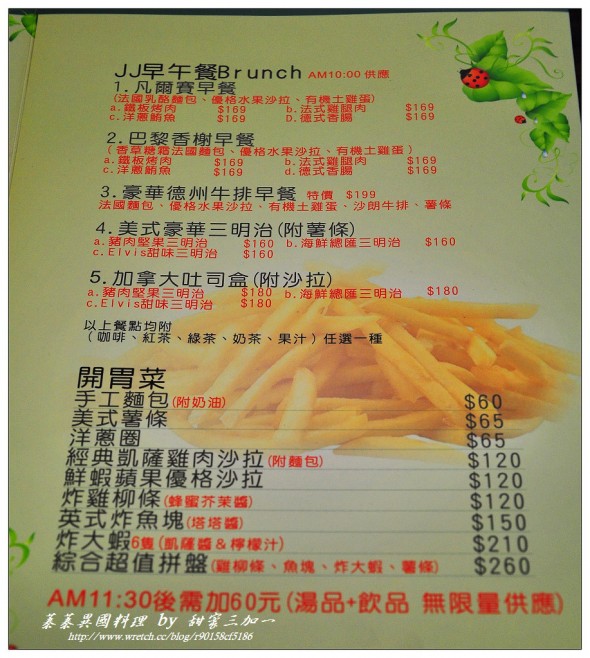 JJ早午餐Brunch AM10:00 供應
1.凡爾賽早餐
(法國乳酪麵包、優格水果沙拉、有機土雞蛋)
a.鐵板烤肉 $169 b.法式雞腿肉 $169
c.洋蔥鮪魚 $169 D.德式香腸 $169
2.巴黎香榭早餐
(香草糖霜法國麵包、優格水果沙拉、有機土雞蛋)
a.鐵板烤肉 $169 b.法式雞腿肉 $169
c.洋蔥鮪魚 $169 d.德式香腸 $169
3.豪華德州牛排早餐 特價 $199
法國麵包、優格水果沙拉、有機土雞蛋、沙朗牛排、薯條
4.美式豪華三明治(附薯條)
a.豬肉堅果三明治 $160 b.海鮮總匯三明治 $160
c.Elvis甜味三明治 $160
5.加拿大吐司盒(附沙拉)
a.豬肉堅果三明治 $180 b.海鮮總匯三明治 $180
c.Elvis甜味三明治 $180
以上餐點均附
(咖啡、紅茶、綠茶、奶茶、果汁)任選一種
開胃菜
手工麵包(附奶油) $60
美式薯條 $65
洋蔥圈 $65
經典凱薩雞肉沙拉(附麵包) $120
鮮蝦蘋果優格沙拉 $120
炸雞柳條(蜂蜜芥茉醬) $120
英式炸魚塊(塔塔醬) $150
炸大蝦6隻(凱薩醬&檸檬汁) $210
綜合超值拼盤(雞柳條、魚塊、炸大蝦、薯條) $260
AM11:30後需加60元(湯品+飲品 無限量供應)
蓁蓁異國料理 by 甜蜜三加一
http://www.wretch.cc/blog/r90158cf5186